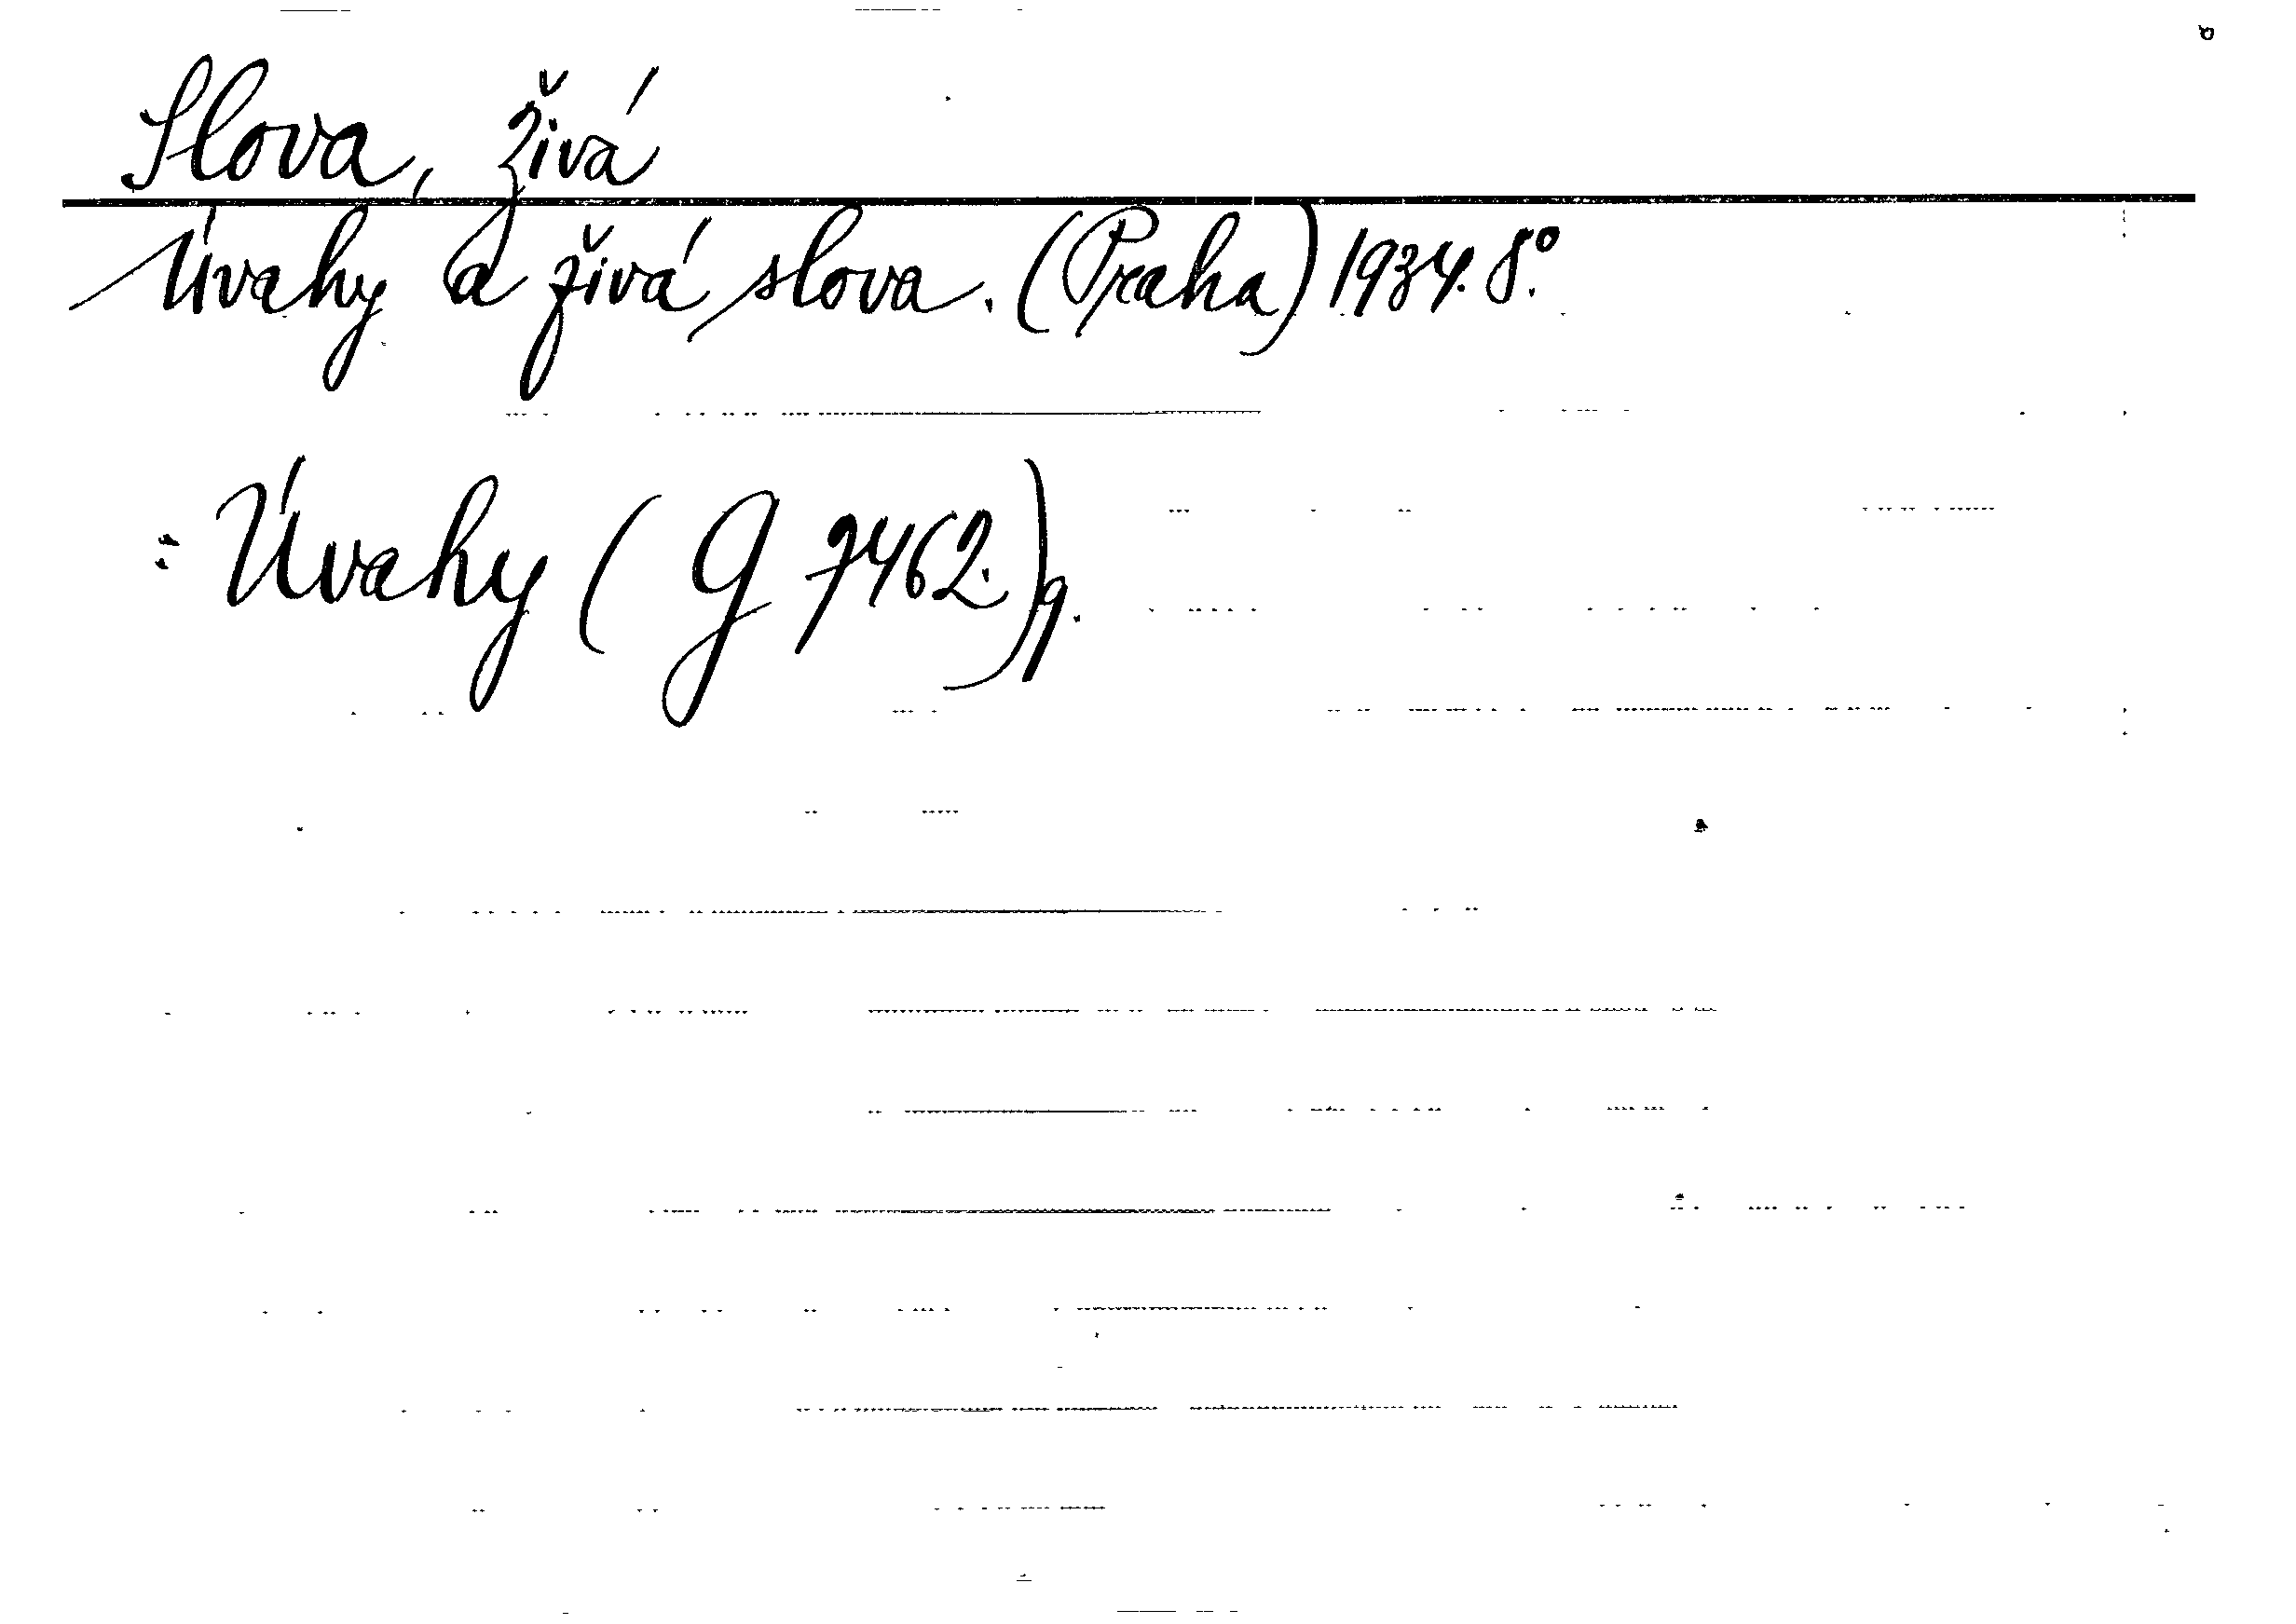 Slova, živá
Úvahy a živá slova. (Praha) 1934. 8°.
: Úvahy (G 7462.)q.